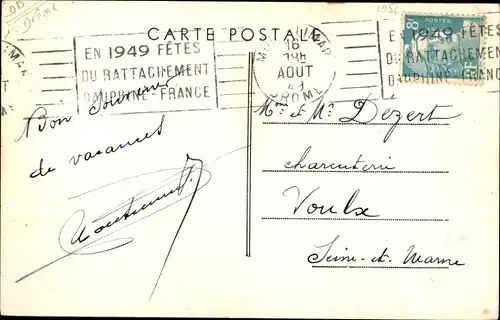 DD
Drôme
CARTE POSTALE
EN 1949 FÊTES
DU RATTACHEMENT
DAUPHINÉ-FRANCE
16
18H
AOUT
49
DROME
EN 1949 FÊTES
DU RATTACHEMENT
DAUPHINÉ
POSTES
8F
RF
Bon Souvenir
de vacances
Mme et Mr Dezert
charcuterie
Voulx
Seine-et-Marne